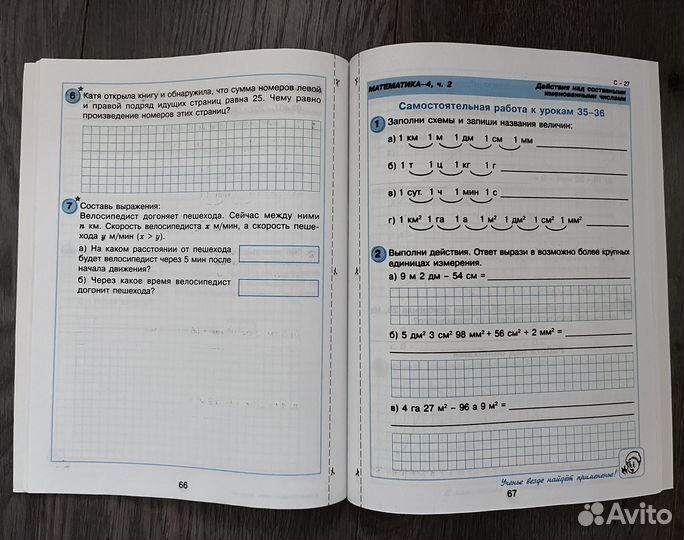 6* Катя открыла книгу и обнаружила, что сумма номеров левой
и правой подряд идущих страниц равна 25. Чему равно
произведение номеров этих страниц?
7* Составь выражения:
Велосипедист догоняет пешехода. Сейчас между ними
n км. Скорость велосипедиста x м/мин, а скорость пеше-
хода y м/мин (x > y).
а) На каком расстоянии от пешехода
будет велосипедист через 5 мин после
начала движения?
б) Через какое время велосипедист
догонит пешехода?
66
С – 27
МАТЕМАТИКА–4, ч. 2
Действия над составными
именованными числами
Самостоятельная работа к урокам 35–36
1 Заполни схемы и запиши названия величин:
а) 1 км 1 м 1 дм 1 см 1 мм
б) 1 т 1 ц 1 кг 1 г
в) 1 сут. 1 ч 1 мин 1 с
г) 1 км² 1 га 1 а 1 м² 1 дм² 1 см² 1 мм²
2 Выполни действия. Ответ вырази в возможно более крупных
единицах измерения.
а) 9 м 2 дм – 54 см =
б) 5 дм² 3 см² 98 мм² + 56 см² + 2 мм² =
в) 4 га 27 м² – 96 а 9 м² =
Ученье везде найдёт примененье!
67
Avito